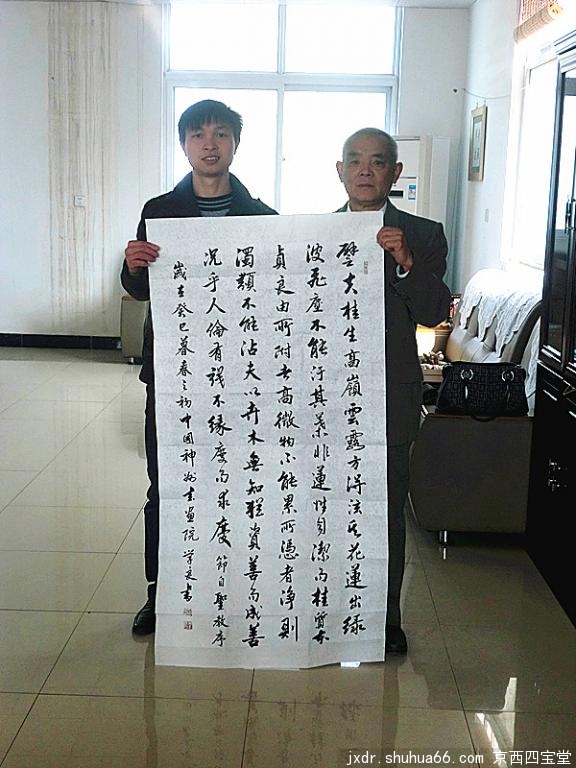 譬夫桂生高嶺雲露方得泫其花蓮出綠
波飛塵不能汙其葉非蓮性自潔而桂質本
貞良由所附者高微物不能累所憑者淨則
濁類不能沾夫以卉木無知猶資善而成善
況乎人倫有識不緣慶而求慶 節自聖教序
歲在癸巳暮春之初中國神州書畫院 書
jxdr.shuhua66.com 京西四宝堂